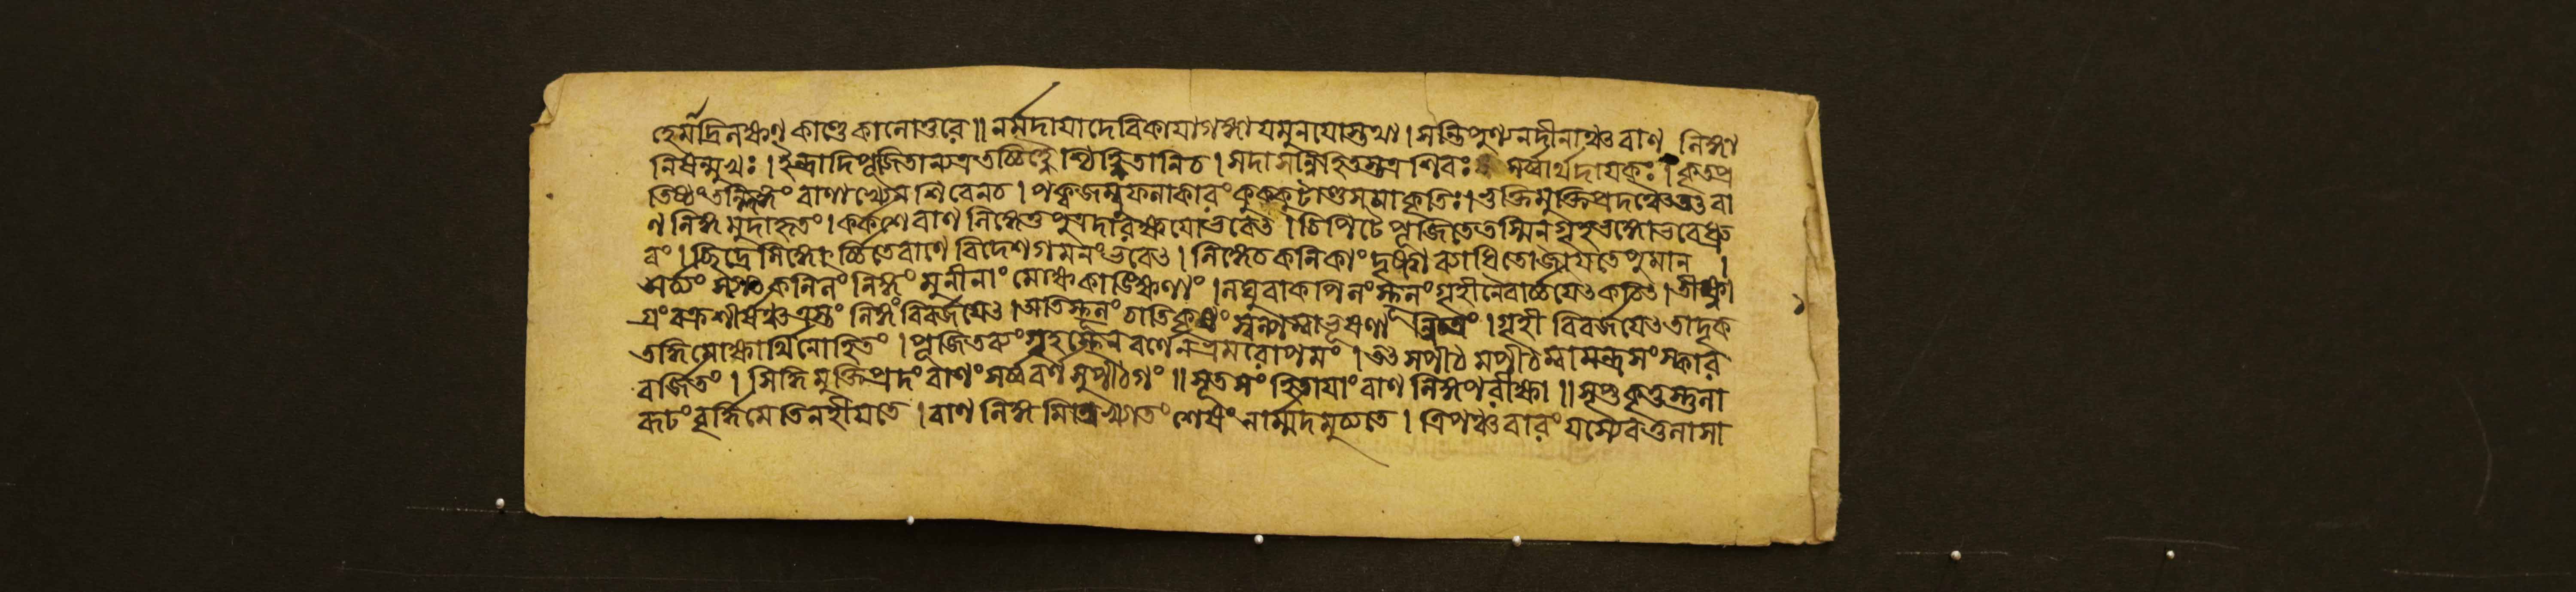 হেমাদ্রিলক্ষণকাণ্ডে কালোত্তরে ॥ নর্ম্মদায়া দেবিকায়া গঙ্গাযমুনয়োস্তথা । সন্তি পুণ্যনদীনাঞ্চ বাণলিঙ্গা
নি ষন্মুখঃ । ইন্দ্রাদিপূজিতান্যত্র তচ্চিহ্নৈশ্চিহ্নিতানি চ । সদা সন্নিহিতস্তত্র শিবঃ সর্ব্বার্থদায়কঃ । কৃতপ্র
তিষ্ঠং তল্লিঙ্গং বাণাখ্যেন শিবেন চ । পক্বজম্বুফলাকারং কুক্কুটাণ্ডসমাকৃতিঃ । ভুক্তিমুক্তিপ্রদঞ্চৈব তত্তু বা
ণলিঙ্গমুদাহৃতং । কর্কশে বাণলিঙ্গে তু পুত্রদারক্ষয়ো ভবেত্ । চিপিটে পূজিতে তস্মিন্ গৃহভঙ্গো ভবেদ্ধ্রু
বং । ছিদ্রে লিঙ্গে র্চ্চিতে বাণে বিদেশগমনং ভবেত্ । লিঙ্গে চ কলিকাং দৃষ্ট্বা ব্যাধিতো জায়তে পুমান্ ।
কলিলং লিঙ্গং মুনীনাং মোক্ষকাঙ্ক্ষিণাং । লঘু বা কপিলং স্থূলং গৃহী নৈবার্চ্চয়েত্ কচিত্ । তীক্ষ্ণা
গ্রং বক্রশীর্ষঞ্চ ত্র্যস্রং লিঙ্গং বিবর্জয়েত্ । অতিস্থূলং চাতিকৃশং স্বল্পং বা ভূষণান্বিতং । গৃহী বিবর্জয়েত্ তাদৃক্
তদ্ধি মোক্ষার্থিনো হিতং । পূজিতব্যং গৃহস্থেন বর্ণেন ভ্রমরোপমং । তত্ সপীঠমপীঠম্বা মন্ত্রসংস্কার
বর্জিতং । সিদ্ধিমুক্তিপ্রদং বাণং সর্ব্ববর্ণসুপীঠগং ॥ সূতসংহিতায়াং বাণলিঙ্গপরীক্ষা ॥ সপ্তকৃত্বস্তুলা
রূঢং বৃদ্ধিমেতি ন হীয়তে । বাণলিঙ্গমিতি খ্যাতং শেষং নার্ম্মদমুচ্যতে । ত্রিপঞ্চবারং যস্যৈব তুলাসা